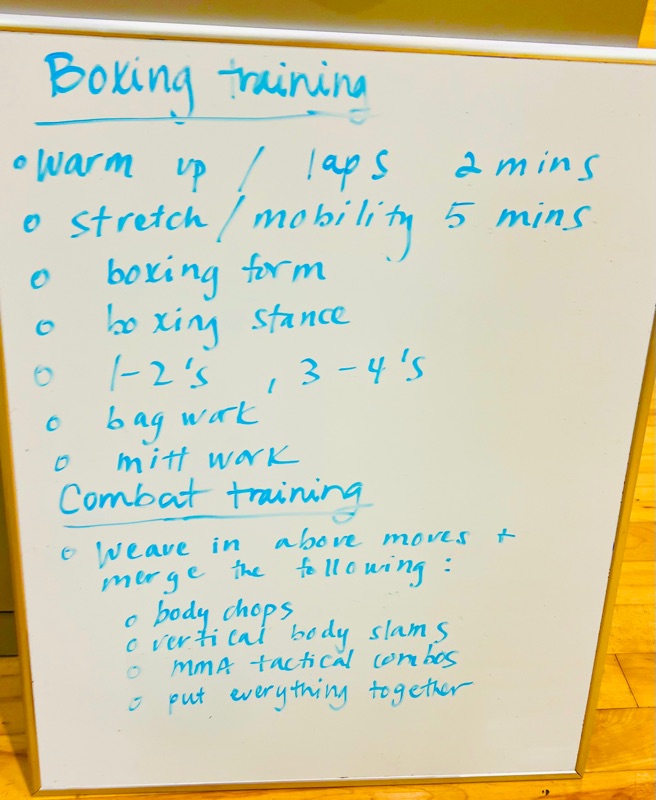 Boxing training
• Warm up / laps 2 mins
o stretch / mobility 5 mins
o boxing form
o boxing stance
o 1-2's , 3-4's
o bag work
o mitt work
Combat training
o Weave in above moves +
merge the following :
o body chops
o vertical body slams
o MMA tactical combos
o put everything together